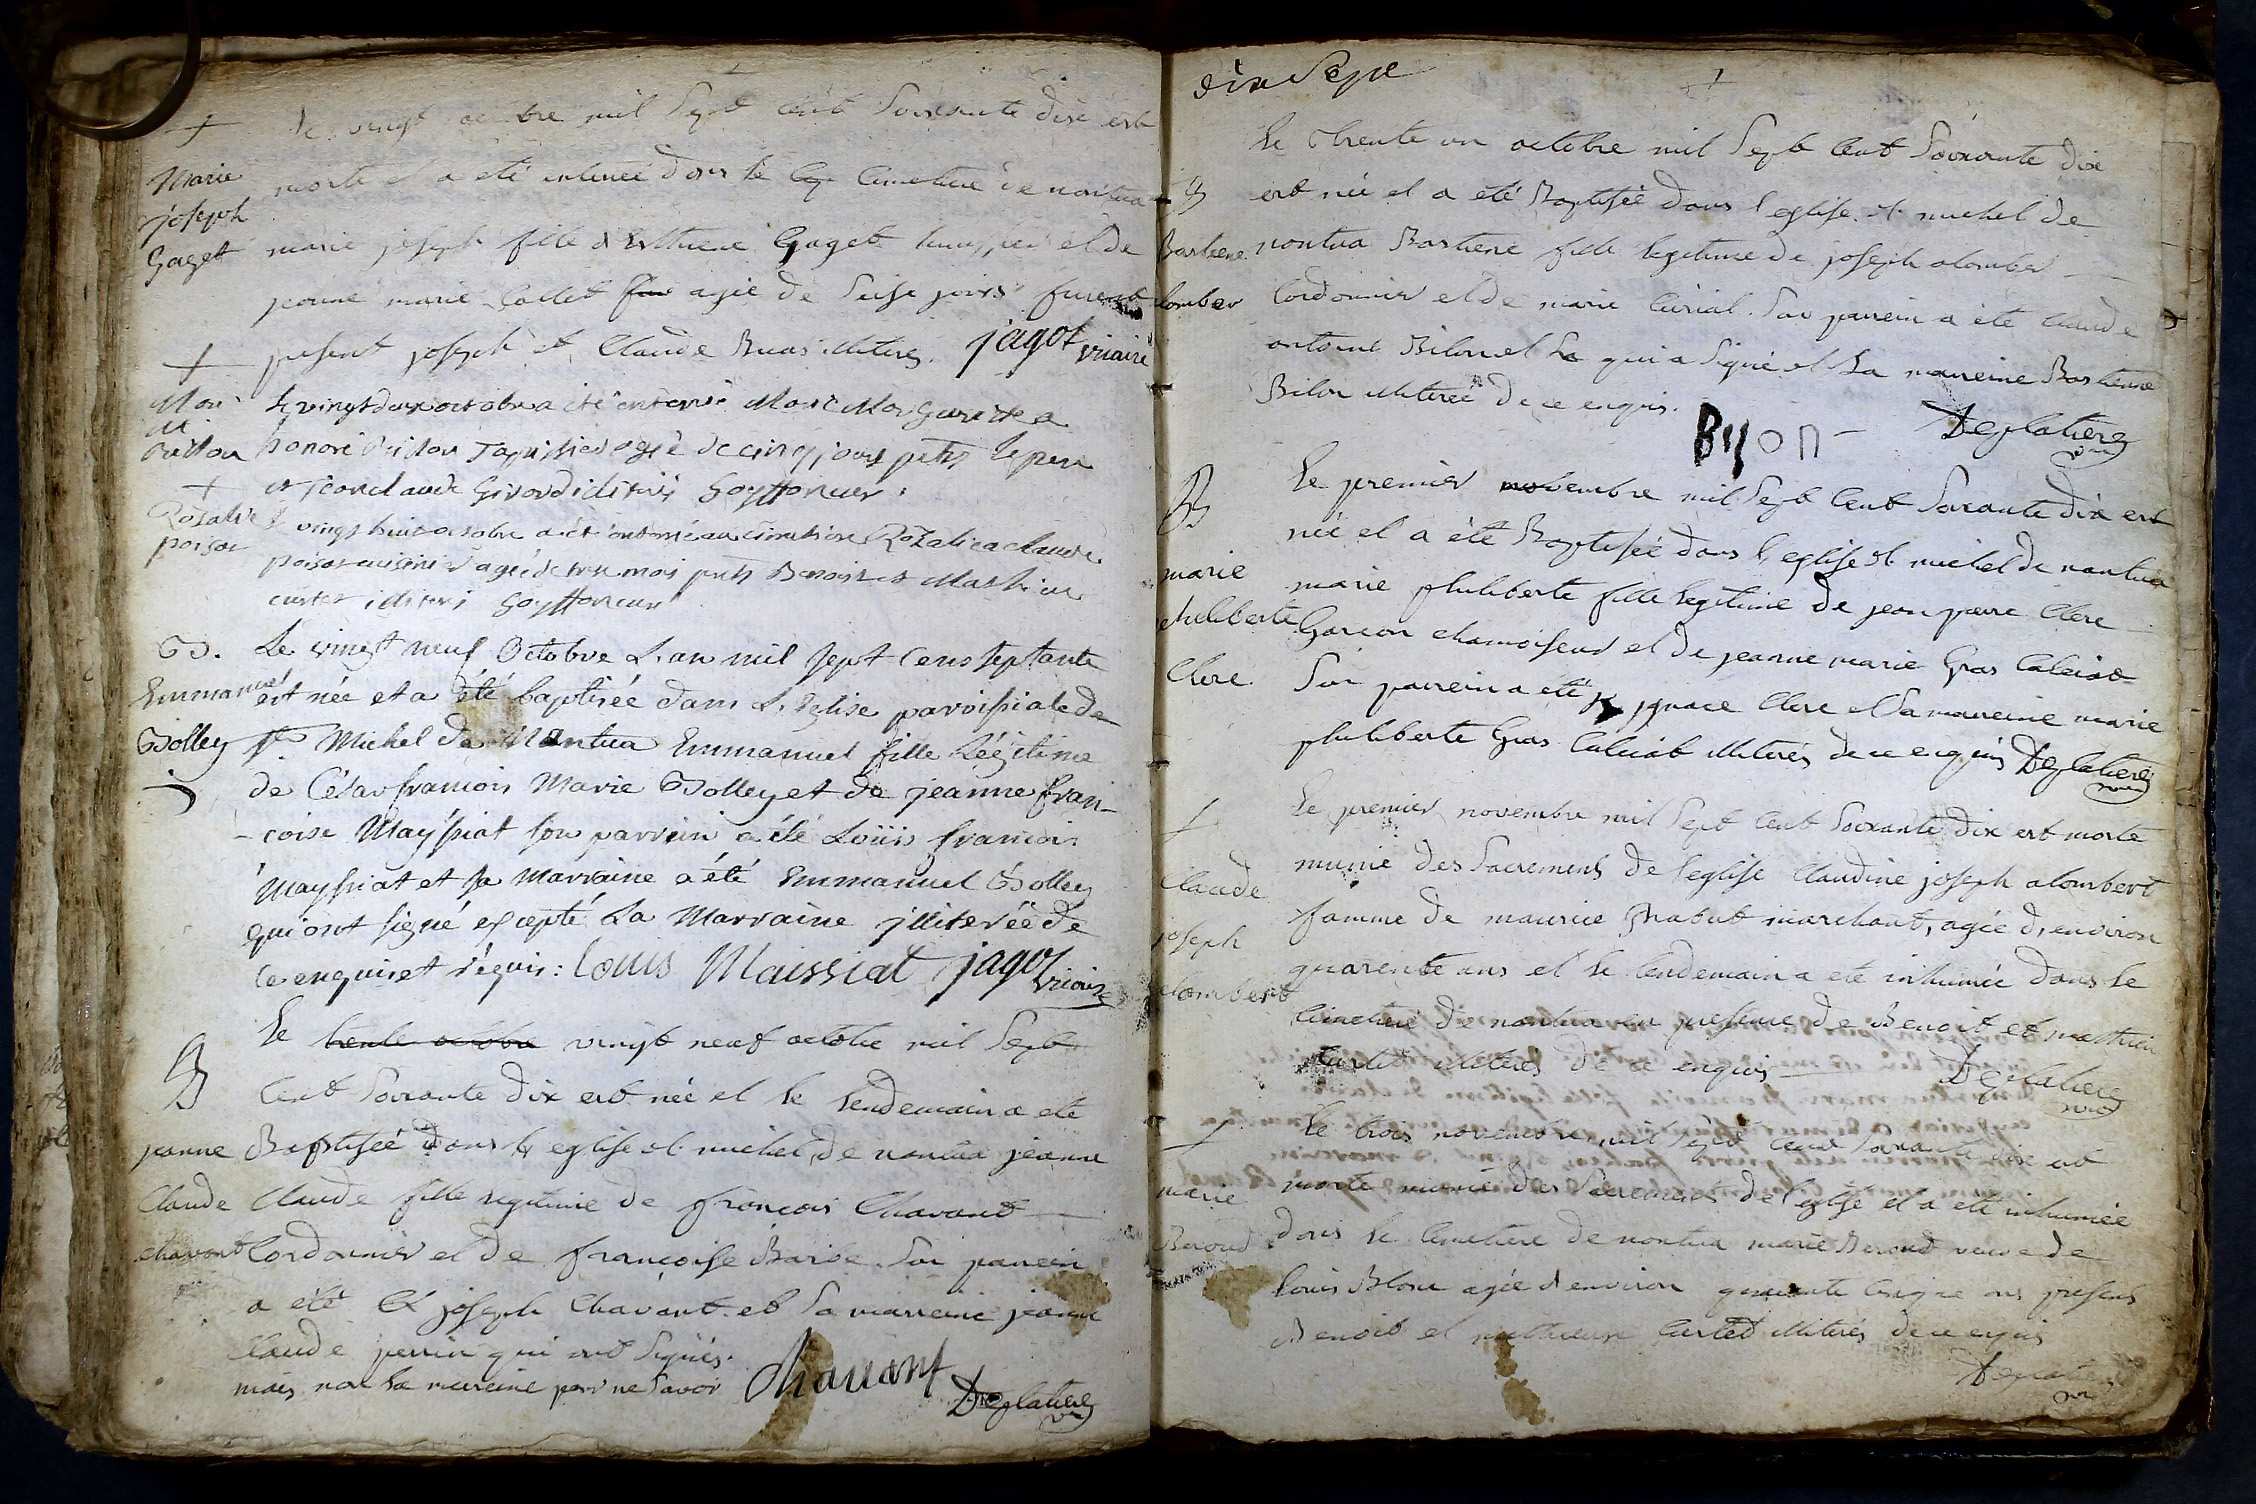 + Le vingt octobre mil Sept Cent Soixante dix est
Marie morte et a été enterrée dans le Cimetiere de nantua
joseph
Gaget marie joseph fille d Gaget et de
jeanne marie Collet agée de Seise jours furent
present joseph et Claude illiteres. jagot vicaire
+
Marie Le vingt deux octobre a été enterré Marie Marguerite a
honoré agé de cinq jours pnts le pere
et jean claude Girod illiterés
+
Rozalie Le vingt huit octobre a été enterré au Cimetiere Rozalie a claude
poisat poisat cuisinier agée de trois mois pnts Benoit et Mathieu
curtet illiterés
B. Le vingt neuf Octobre L'an mil sept Cens septante
Emmanuel est née et a été baptisée dans L'Eglise paroissiale de
Bolley St. Michel de Nantua Emmanuel fille Légitime
de César francois Marie Bolley et de jeanne fran-
-coise Mayssiat son parrain a été Loüis francois
Mayssiat et sa Marraine a été Emmanuel Bolley
qui ont signé excepté La Marraine jlliterée de
ce enquise et réquis: louis Maissiat jagot vicaire
Le trente octobre vingt neuf octobre mil Sept
B Cent Soixante dix est née et le lendemain a été
jeanne Baptisée dans l'eglise st. michel de nantua jeanne
Claude Claude fille legitime de françois Chavant
chavant Cordonnier et de françoise Baride. Son parrein
a été joseph Chavant. et Sa marreine jeanne
Claude perrin qui ont Signés.
mais non la marreine pour ne Savoir Chauant Deglatiere vic
dix Sept
Le trente un octobre mil Sept Cent Soixante dix
B est née et a été Baptisée dans l'eglise. st. michel de
Bastiene nantua Bastiene fille legitime de joseph alomber
alomber Cordonnier et de marie Curial. Son parrein a été Claude
antoine Bilon et qui a Signé et Sa marreine Bastienne
Bilon illiterée de ce enquis.
Byon Deglatiere vic
Le premier novembre mil Sept Cent Soixante dix est
B née et a été Baptisée dans l'eglise st. michel de nantua
marie marie philiberte fille legitime de jean pierre Clerc
philiberte Garcon chamoiseur et de jeanne marie Gras Calciat
Clerc. Son parrein a été ignace Clerc et Sa marreine marie
philiberte Gras Calciat illiterés de ce enquis Deglatiere vic
+ Le premier novembre mil Sept Cent Soixante dix est morte
munie des Sacrements de l'eglise Claudine joseph alombert
Claude famme de maurice Chabut marchant, agée d'environ
joseph
alombert quarente ans et le lendemain a été inhumée dans le
Cimetiere de nantua en presence de Benoit et matthieu
Curtet illiterés de ce enquis Deglatiere vic
+ Le trois novembre mil Sept Cent Soixante dix est
marie morte munie des Sacrements de l'eglise et a été inhumée
Beroud dans le Cimetiere de nantua marie Beroud veuve de
louis Blanc agée d'environ quarante Cinq ans presens
Benoit et matthieu Curtet illiterés de ce enquis
Deglatiere vic